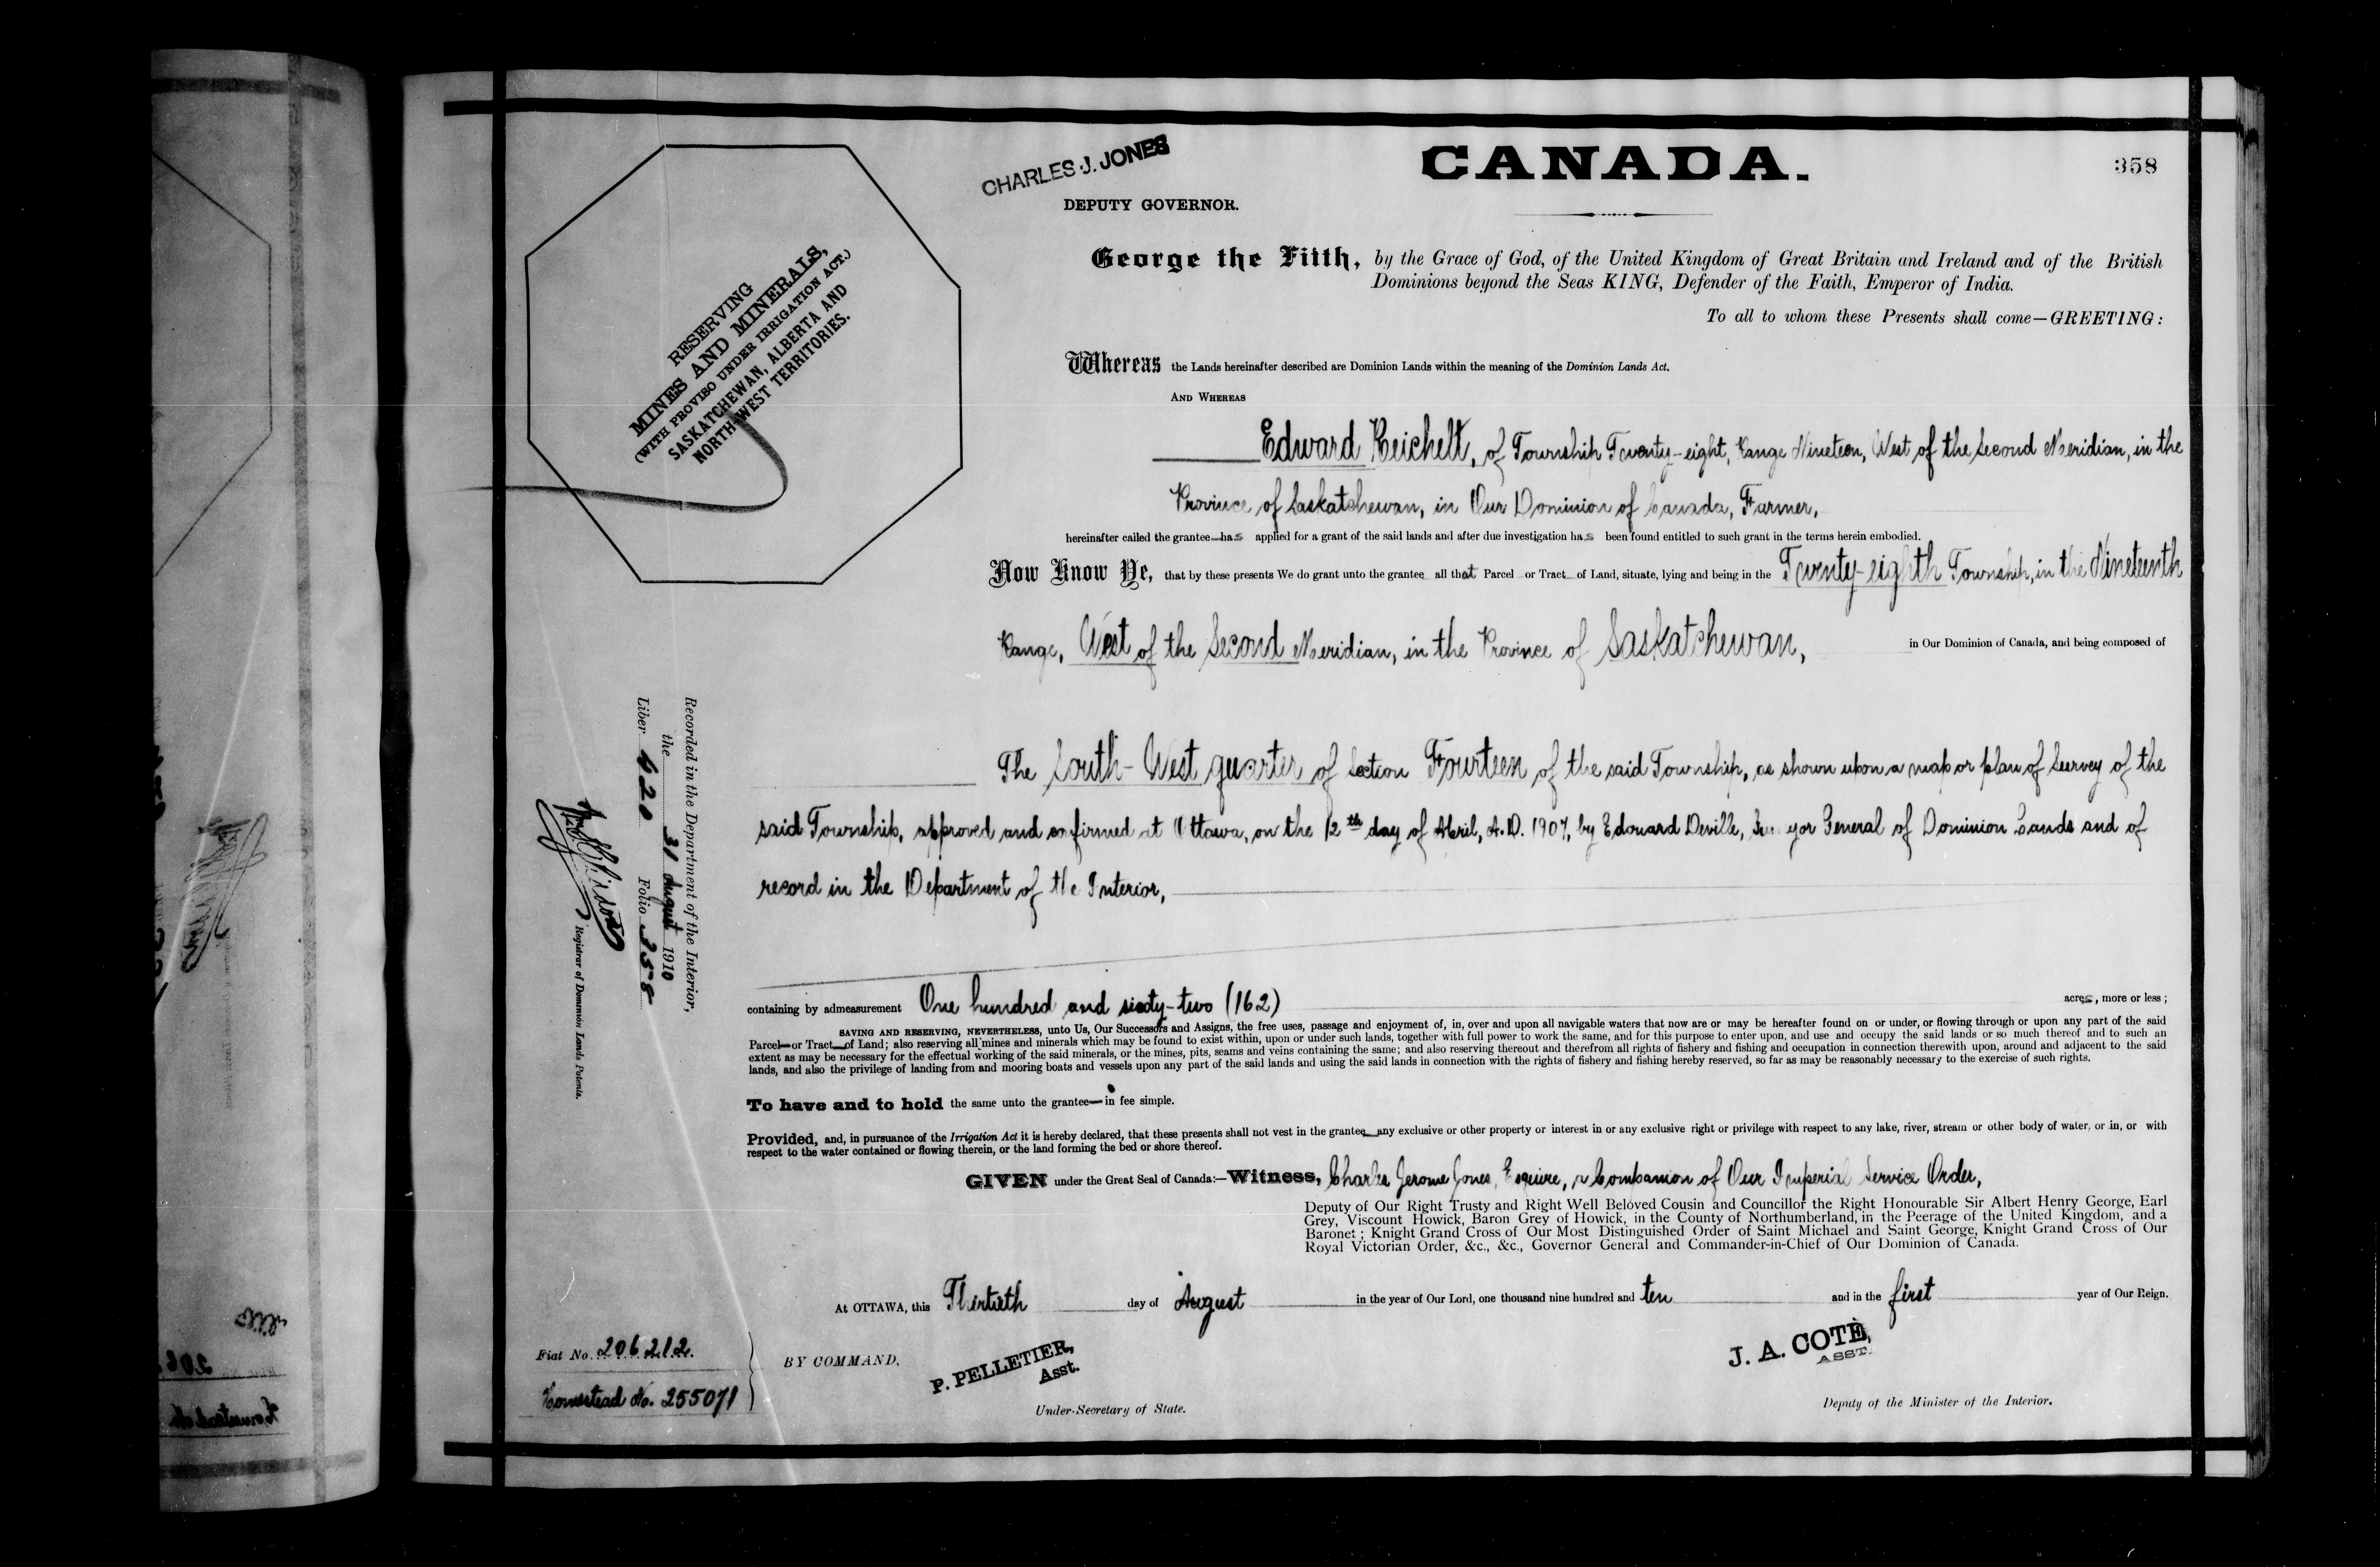 CHARLES J. JONES
DEPUTY GOVERNOR.
CANADA.
358
RESERVING
MINES AND MINERALS,
(WITH PROVISO UNDER IRRIGATION ACT.)
SASKATCHEWAN, ALBERTA AND
NORTH-WEST TERRITORIES.
George the Fifth, by the Grace of God, of the United Kingdom of Great Britain and Ireland and of the British
Dominions beyond the Seas KING, Defender of the Faith, Emperor of India.
To all to whom these Presents shall come—GREETING:
Whereas the Lands hereinafter described are Dominion Lands within the meaning of the Dominion Lands Act.
AND WHEREAS
Edward Reichelt, of Township Twenty-eight, Range Nineteen, West of the Second Meridian, in the
Province of Saskatchewan, in Our Dominion of Canada, Farmer,
hereinafter called the grantee has applied for a grant of the said lands and after due investigation has been found entitled to such grant in the terms herein embodied.
Now Know Ye, that by these presents We do grant unto the grantee all that Parcel or Tract of Land, situate, lying and being in the Twenty-eighth Township, in the Nineteenth
Range, West of the Second Meridian, in the Province of Saskatchewan, in Our Dominion of Canada, and being composed of
The South-West quarter of Section Fourteen of the said Township, as shown upon a map or plan of Survey of the
said Township, approved and confirmed at Ottawa, on the 12th day of April, A.D. 1907, by Edouard Deville, Surveyor General of Dominion Lands and of
record in the Department of the Interior,
containing by admeasurement One hundred and sixty-two (162) acres, more or less;
SAVING AND RESERVING, NEVERTHELESS, unto Us, Our Successors and Assigns, the free uses, passage and enjoyment of, in, over and upon all navigable waters that now are or may be hereafter found on or under, or flowing through or upon any part of the said
Parcel or Tract of Land; also reserving all mines and minerals which may be found to exist within, upon or under such lands, together with full power to work the same, and for this purpose to enter upon, and use and occupy the said lands or so much thereof and to such an
extent as may be necessary for the effectual working of the said minerals, or the mines, pits, seams and veins containing the same; and also reserving thereout and therefrom all rights of fishery and fishing and occupation in connection therewith upon, around and adjacent to the said
lands, and also the privilege of landing from and mooring boats and vessels upon any part of the said lands and using the said lands in connection with the rights of fishery and fishing hereby reserved, so far as may be reasonably necessary to the exercise of such rights.
To have and to hold the same unto the grantee in fee simple.
Provided, and, in pursuance of the Irrigation Act it is hereby declared, that these presents shall not vest in the grantee any exclusive or other property or interest in or any exclusive right or privilege with respect to any lake, river, stream or other body of water, or in, or with
respect to the water contained or flowing therein, or the land forming the bed or shore thereof.
GIVEN under the Great Seal of Canada:—Witness, Charles Jerome Jones, Esquire, a Companion of Our Imperial Service Order,
Deputy of Our Right Trusty and Right Well Beloved Cousin and Councillor the Right Honourable Sir Albert Henry George, Earl
Grey, Viscount Howick, Baron Grey of Howick, in the County of Northumberland, in the Peerage of the United Kingdom, and a
Baronet; Knight Grand Cross of Our Most Distinguished Order of Saint Michael and Saint George, Knight Grand Cross of Our
Royal Victorian Order, &c., &c., Governor General and Commander-in-Chief of Our Dominion of Canada.
At OTTAWA, this Thirtieth day of August in the year of Our Lord, one thousand nine hundred and ten and in the first year of Our Reign.
BY COMMAND,
P. PELLETIER,
Asst.
Under-Secretary of State.
J. A. COTE,
ASST.
Deputy of the Minister of the Interior.
Recorded in the Department of the Interior,
the 31 August 1910
Liber 420 Folio 358
Registrar of Dominion Lands Patents.
Fiat No. 206212.
Homestead No. 255071